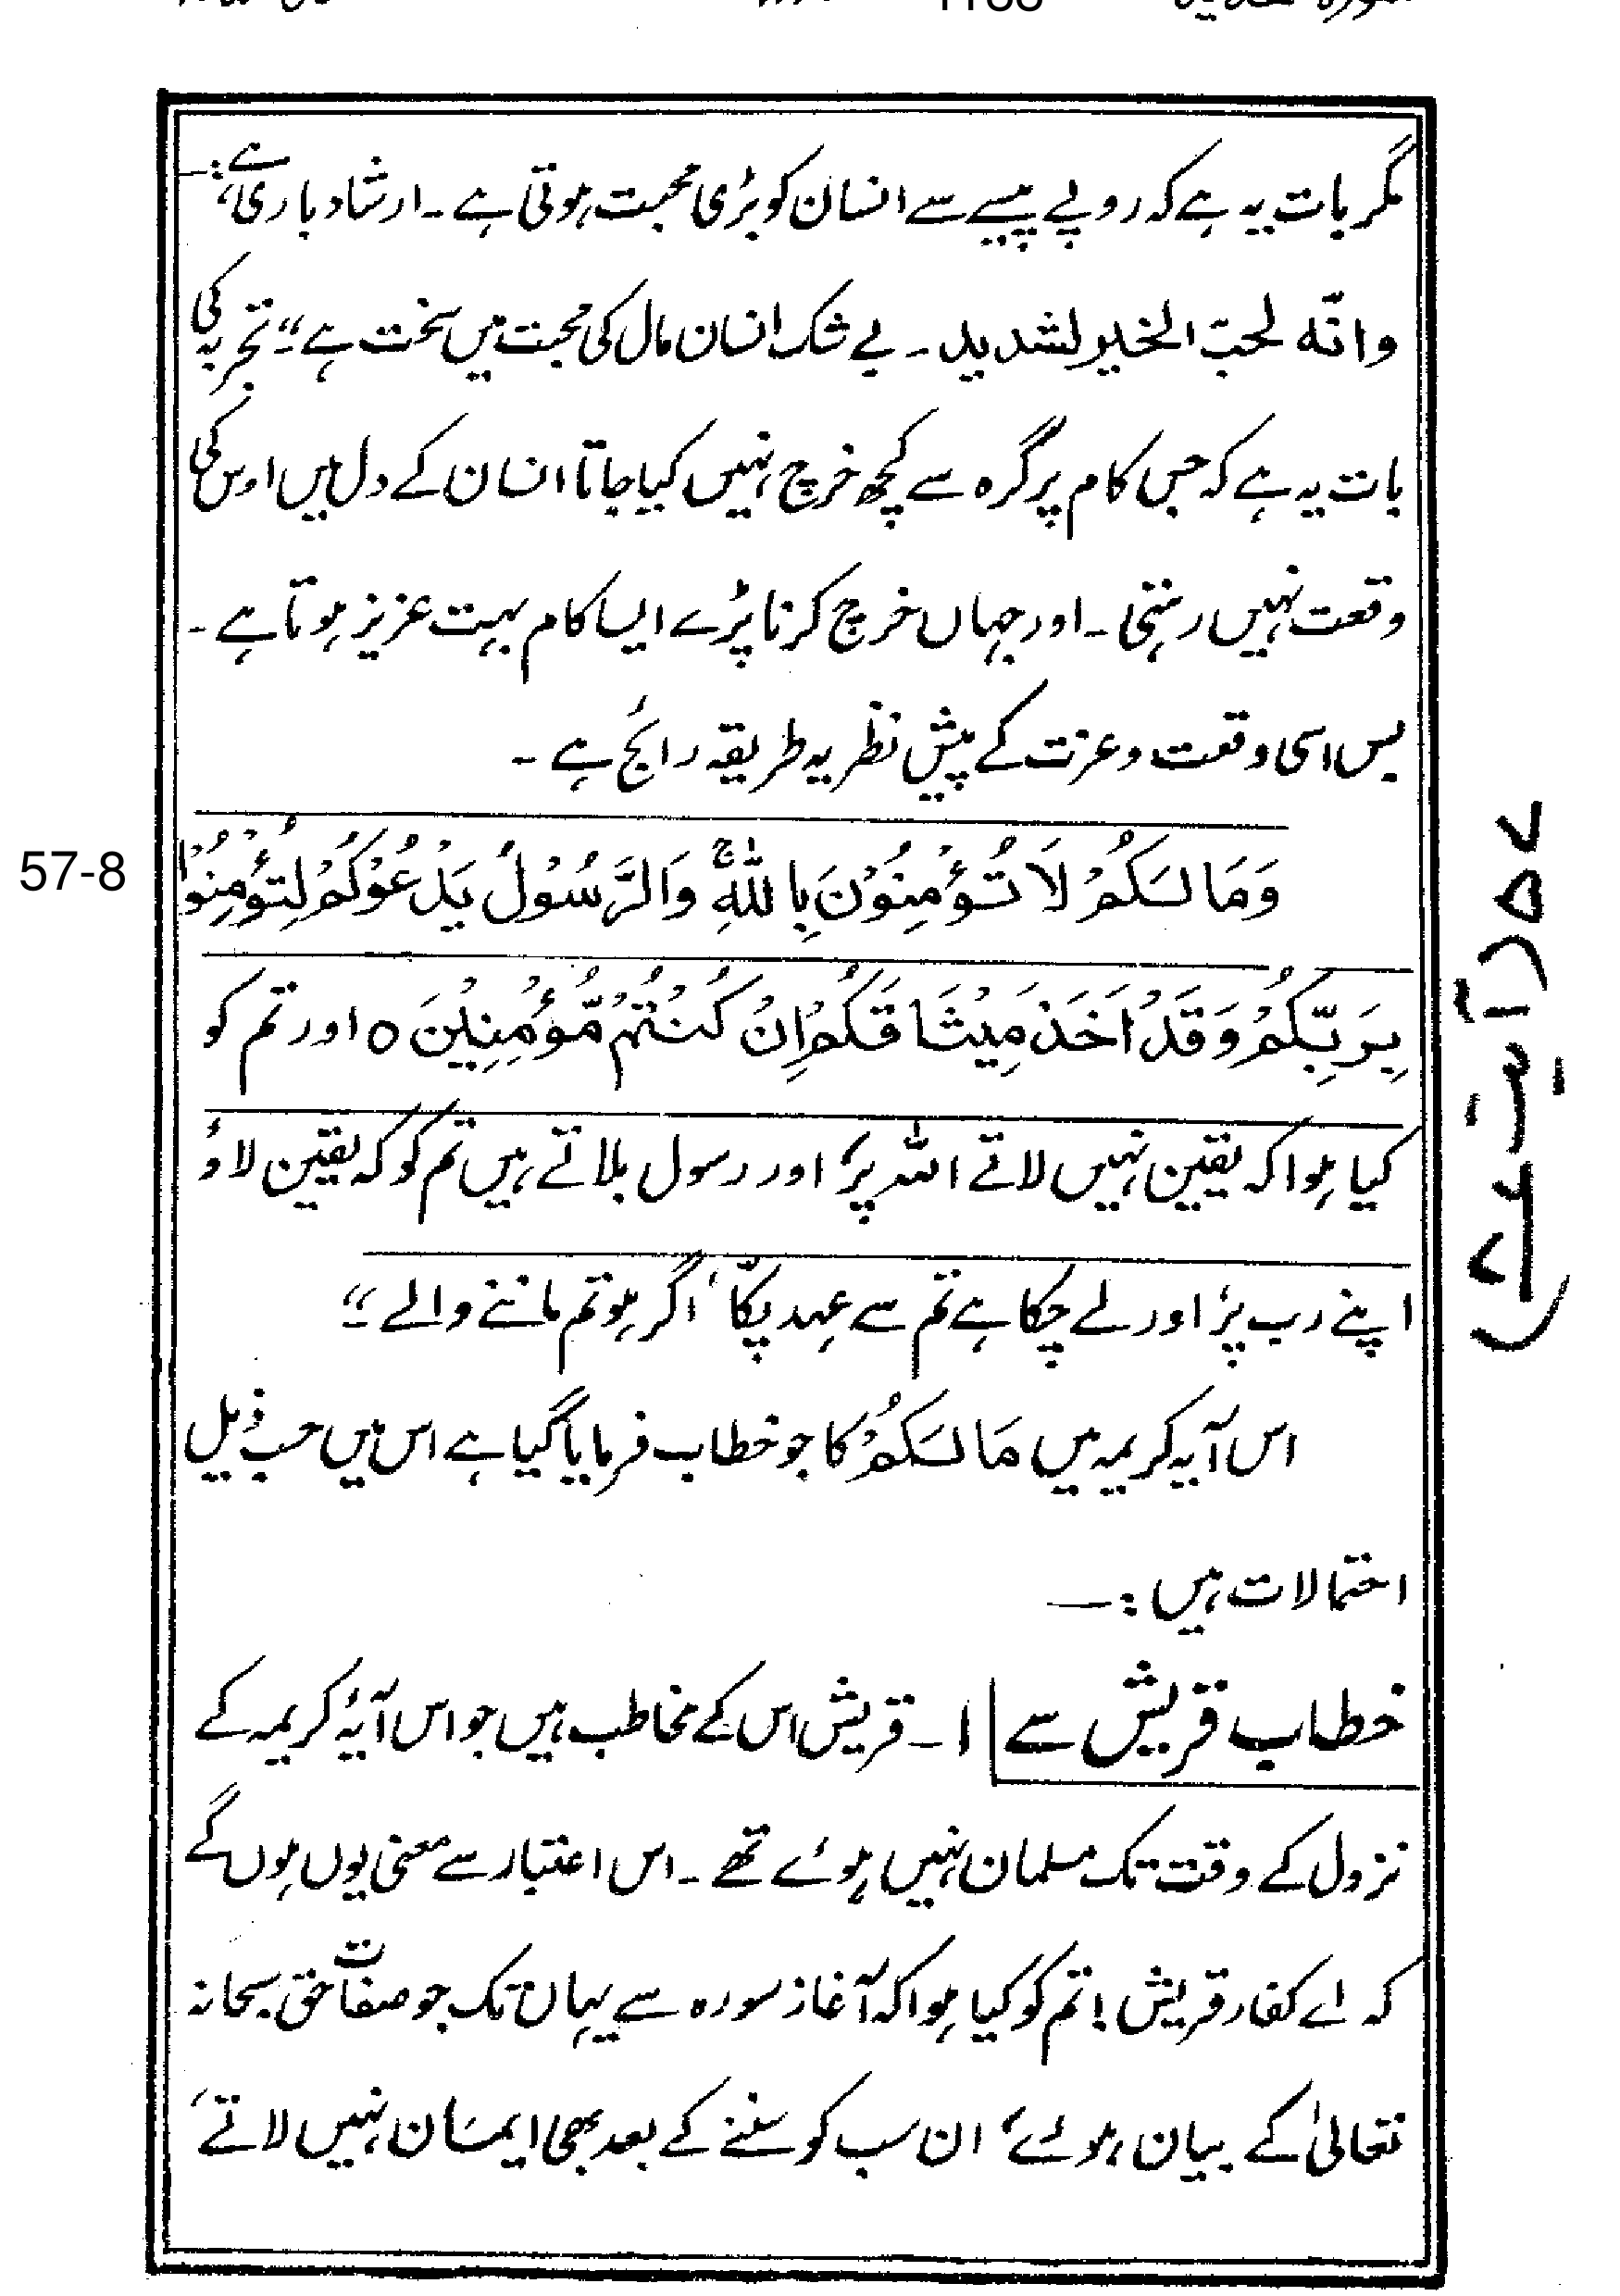 مگر بات یہ ہے کہ روپے پیسے سے انسان کو بڑی محبت ہوتی ہے ۔ ارشاد باری ہے :۔
وانّہ لحبّ الخیر لشدید ۔ بے شک انسان مال کی محبت میں سخت ہے ‘‘۔ تجربہ کی
بات یہ ہے کہ جس کام پر گرہ سے کچھ خرچ نہیں کیا جاتا انسان کے دل میں اوس کی
وقعت نہیں رہتی ۔ اور جہاں خرچ کرنا پڑے ایسا کام بہت عزیز ہوتا ہے ۔
پس اسی وقعت و عزت کے پیش نظر یہ طریقہ رائج ہے ۔
57-8
وَمَا لَـكُمْ لَا تُؤْمِنُوْنَ بِاللّٰهِ ۚ وَالرَّسُوْلُ يَدْعُوْكُمْ لِتُؤْمِنُوْا
بِرَبِّكُمْ وَقَدْ اَخَذَ مِيْثَاقَكُمْ اِنْ كُنْتُمْ مُّؤْمِنِيْنَ ۝ اور تم کو
کیا ہوا کہ یقین نہیں لاتے اللہ پر، اور رسول بلاتے ہیں تم کو کہ یقین لاؤ
اپنے رب پر، اور لے چکا ہے تم سے عہد پکّا، اگر ہو تم ماننے والے ‘‘۔
اس آیہ کریمہ میں مَا لَـكُمْ کا جو خطاب فرمایا گیا ہے اس میں حسب ذیل
احتمالات ہیں :۔
خطاب قریش سے ۱ ۔ قریش اس کے مخاطب ہیں جو اس آیۂ کریمہ کے
نزول کے وقت تک مسلمان نہیں ہوئے تھے ۔ اس اعتبار سے معنی یوں ہوں گے
کہ اے کفار قریش ! تم کو کیا ہوا کہ آغاز سورہ سے یہاں تک جو صفات حق سبحانہ
تعالیٰ کے بیان ہوئے، ان سب کو سننے کے بعد بھی ایمان نہیں لاتے،